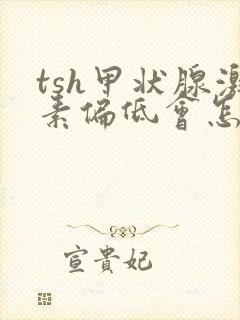 tsh甲状腺激
素偏低會怎
宣貴妃